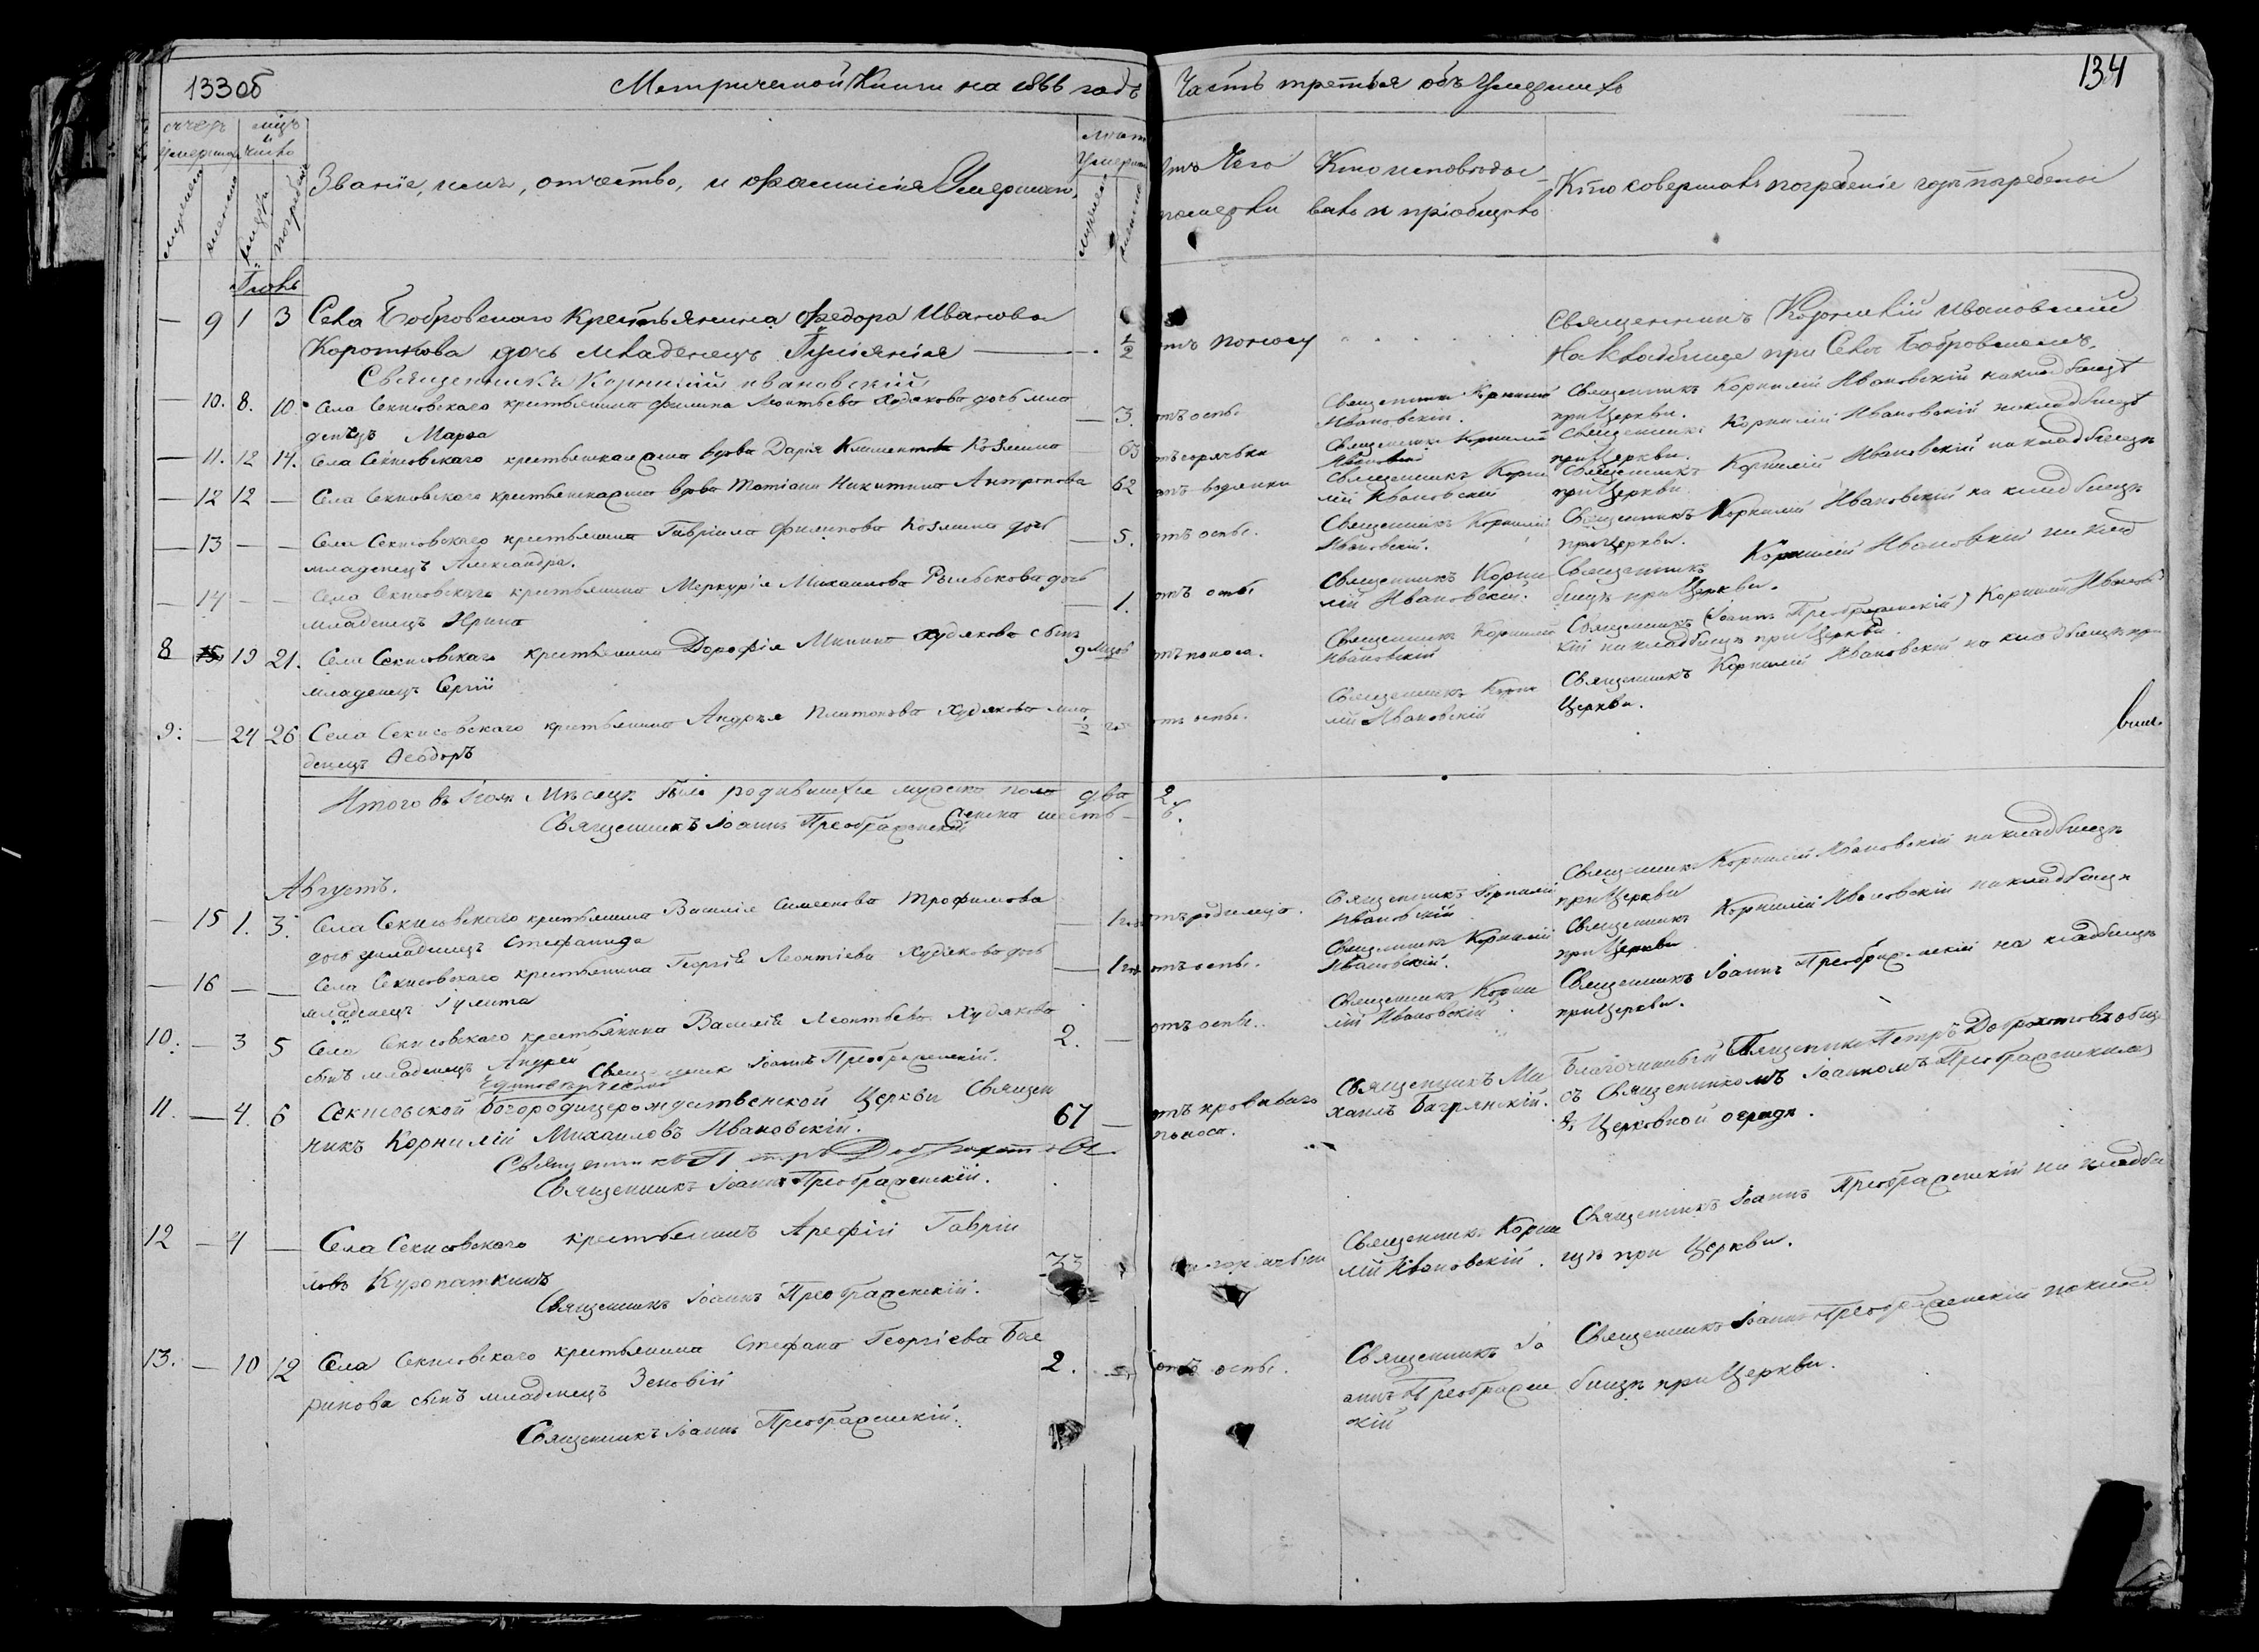 133об
Метрической Книги на 1866 годъ Часть третья объ Умершихъ
134
счетъ умершихъ
мсцъ и число
мужеска
женска
смерти
погребенія
Званіе, имя, отчество, и фамилія Умершихъ,
лѣта Умершихъ
мужеска
женска
Отъ чего померли
Кто исповѣдывалъ и пріобщалъ
Кто совершалъ погребеніе гдѣ погребены
Іюль
— 9 1 3 Села Бобровскаго крестьянина Федора Иванова
Короткова дочь младенецъ Іуліанія — 1/2 отъ поносу
Священникъ Корнилій Ивановскій
На кладбище при Селѣ Бобровскомъ.
Священникъ Корнилій Ивановскій
— 10. 8. 10. Села Секисовскаго крестьянина Филипа Леонтьева Худякова дочь мла
денецъ Марѳа — 3. отъ оспы
Священникъ Корнилій Ивановскій.
Священникъ Корнилій Ивановскій на кладбищѣ при Церкви.
— 11. 12 14. Села Секисовскаго крестьянская вдова Дарія Климентова Козлина 63 отъ горячки
Священникъ Корнилій Ивановскій
Священникъ Корнилій Ивановскій на кладбищѣ при Церкви.
— 12 12 — Села Секисовскаго крестьянская вдова Татіана Никитина Антропова 62 отъ водянки
Священникъ Корнилій Ивановскій
Священникъ Корнилій Ивановскій на кладбищѣ при Церкви
— 13 — — Села Секисовскаго крестьянина Гавріила Филипова Козлина дочь
младенецъ Александра. — 5. отъ оспы.
Священникъ Корнилій Ивановскій.
Священникъ Корнилій Ивановскій на кладбищѣ при Церкви.
— 14 — — Села Секисовскаго крестьянина Меркурія Михаилова Рыльскова дочь
младенецъ Ирина — 1. отъ оспы
Священникъ Корнилій Ивановскій.
Священникъ Корнилій Ивановскій на кладбищѣ при Церкви.
8 15 19 21. Села Секисовскаго крестьянина Дорофія Минина Худякова сынъ
младенецъ Сергій 9 мцов отъ поноса.
Священникъ Корнилій Ивановскій
Священникъ (Іоаннъ Преображенскій) Корнилій Ивановскій на кладбищѣ при Церкви.
9. — 24 26 Села Секисовскаго крестьянина Андрея Платонова Худякова мла
денецъ Ѳеодоръ 1/2 го отъ оспы.
Священникъ Корнилій Ивановскій
Священникъ Корнилій Ивановскій на кладбищѣ при Церкви.
Итого въ Іюлѣ Мѣсяцѣ было родившихся мужска пола два 2
женска шесть 6.
Священникъ Іоаннъ Преображенскій
Августъ.
— 15 1. 3. Села Секисовскаго крестьянина Василія Симеонова Трофимова
дочь младенецъ Стефанида — 1 год отъ родимца.
Священникъ Корнилій Ивановскій
Священникъ Корнилій Ивановскій на кладбищѣ при Церкви
— 16 — — Села Секисовскаго крестьянина Георгія Леонтіева Худякова дочь
младенецъ Іулита — 1 год отъ оспы.
Священникъ Корнилій Ивановскій.
Священникъ Корнилій Ивановскій на кладбищѣ при Церкви
10. — 3 5 Села Секисовскаго крестьянина Василія Леонтьева Худякова
сынъ младенецъ Андрей 2. — отъ оспы.
Священникъ Іоаннъ Преображенскій.
Священникъ Корнилій Ивановскій
Священникъ Іоаннъ Преображенскій на кладбищѣ при Церкви.
11. — 4. 6 Секисовской Единовѣрческой Богородицерождественской Церкви Священ
никъ Корнилій Михаиловъ Ивановскій. 67 — отъ кроваваго поноса.
Священникъ Михаилъ Багрянскій.
Благочинный Священникъ Петръ Доброхотовъ обще
съ Священникомъ Іоанномъ Преображенскимъ
въ Церковной оградѣ.
Священникъ Петръ Доброхотовъ.
Священникъ Іоаннъ Преображенскій.
12 — 4 — Села Секисовскаго крестьянинъ Арефій Гаврі
ловъ Куропаткинъ 33 отъ горячки
Священникъ Корнилій Ивановскій.
Священникъ Іоаннъ Преображенскій на кладби
щѣ при Церкви.
Священникъ Іоаннъ Преображенскій.
13. — 10 12 Села Секисовскаго крестьянина Стефана Георгіева Бае
ринова сынъ младенецъ Зеновій 2. — отъ оспы.
Священникъ Іоаннъ Преображенскій
Священникъ Іоаннъ Преображенскій на клад
бищѣ при Церкви.
Священникъ Іоаннъ Преображенскій.